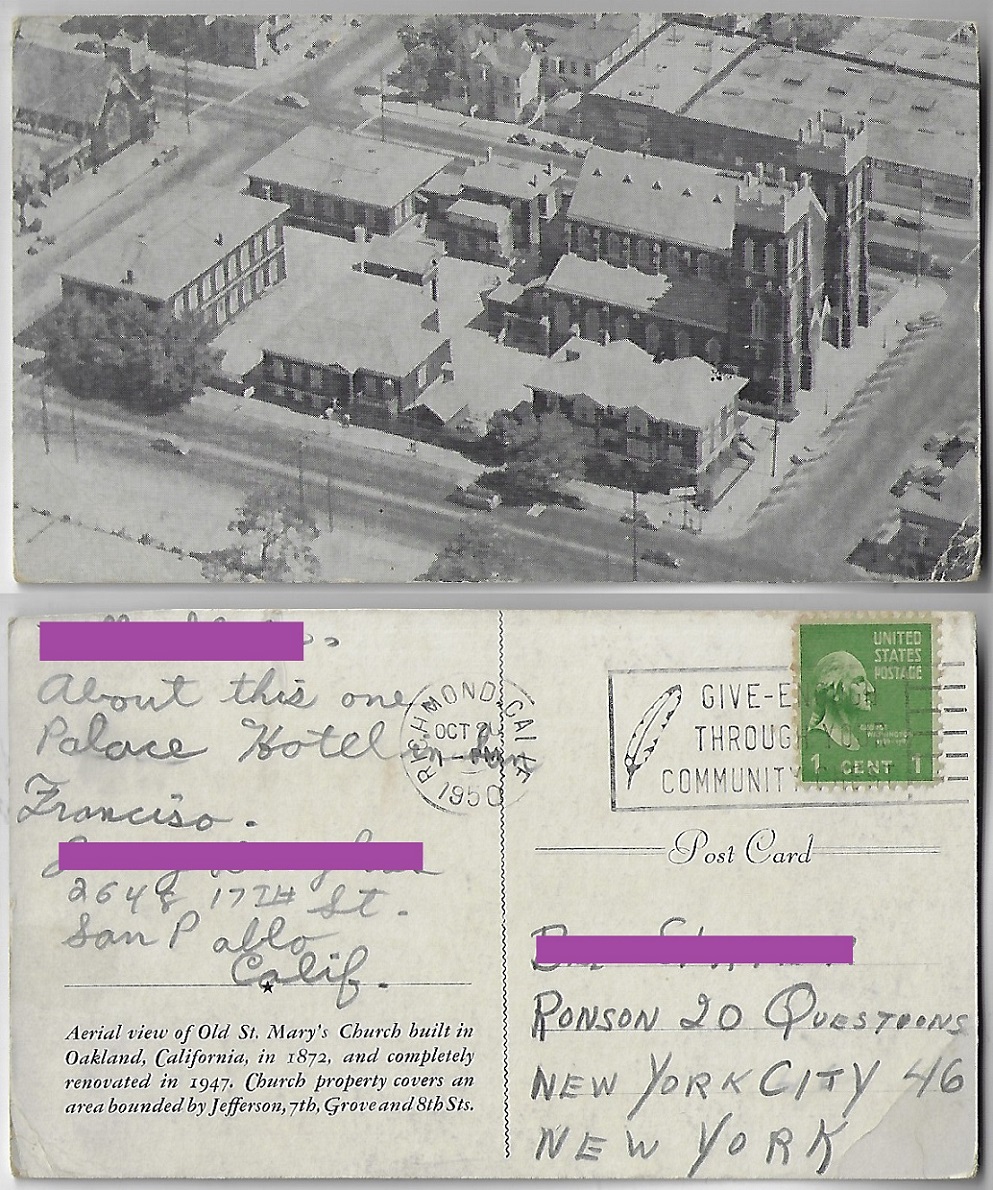 About this one
Palace Hotel in San
Franciso.
2648 17TH St.
San Pablo
Calif.
Aerial view of Old St. Mary's Church built in
Oakland, California, in 1872, and completely
renovated in 1947. Church property covers an
area bounded by Jefferson, 7th, Grove and 8th Sts.
RICHMOND, CALIF
OCT
1950
GIVE-E
THROUGH
COMMUNITY
UNITED
STATES
POSTAGE
1 CENT 1
Post Card
RONSON 20 QUESTOONS
NEW YORK CITY 46
NEW YORK